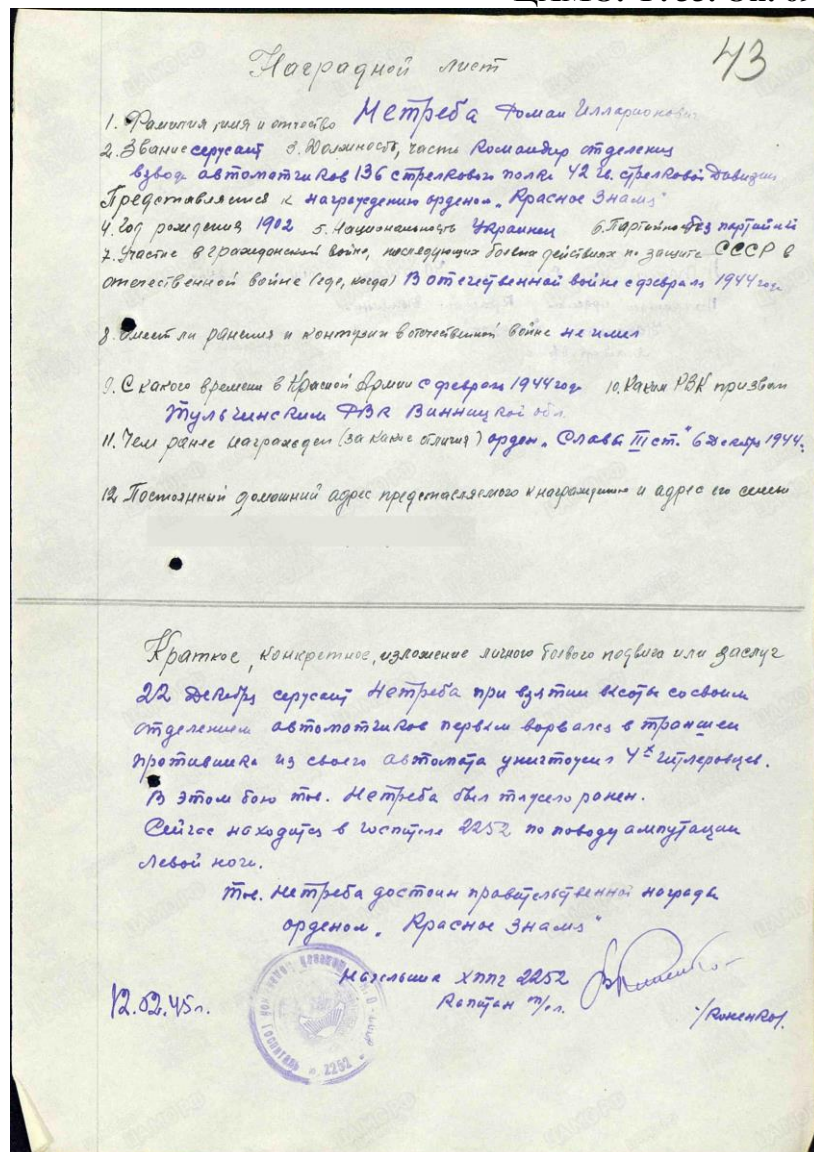 43
Наградной лист
1. Фамилия, имя и отчество Нетреба Роман Илларионович
2. Звание сержант 3. Должность, часть Командир отделения
взвода автоматчиков 136 стрелкового полка 42 гв. стрелковой Дивизии
Представляется к награждению орденом „Красное Знамя"
4. Год рождения 1902 5. Национальность Украинец 6. Партийность без партийный
7. Участие в гражданской войне, последующих боевых действиях по защите СССР в
отечественной войне (где, когда) В отечественной войне с февраля 1944 года
8. Имеет ли ранения и контузии в отечественной войне не имел
9. С какого времени в Красной Армии с февраля 1944 года 10. Каким РВК призван
Тульчинским РВК Винницкой обл.
11. Чем ранее награжден (за какие отличия) орден „Слава III ст." 6 декабря 1944г.
12. Постоянный домашний адрес представляемого к награждению и адрес его семьи
Краткое, конкретное, изложение личного боевого подвига или заслуг
22 Декабря сержант Нетреба при взятии высоты со своим
отделением автоматчиков первым ворвался в траншеи
противника из своего автомата уничтожил 4х гитлеровцев.
В этом бою тов. Нетреба был тяжело ранен.
Сейчас находится в госпитале 2252 по поводу ампутации
левой ноги.
Тов. Нетреба достоин правительственной награды
орденом „Красное Знамя"
Начальник ХППГ 2252
Капитан м/сл.
12.02.45г.
/Коненко/.